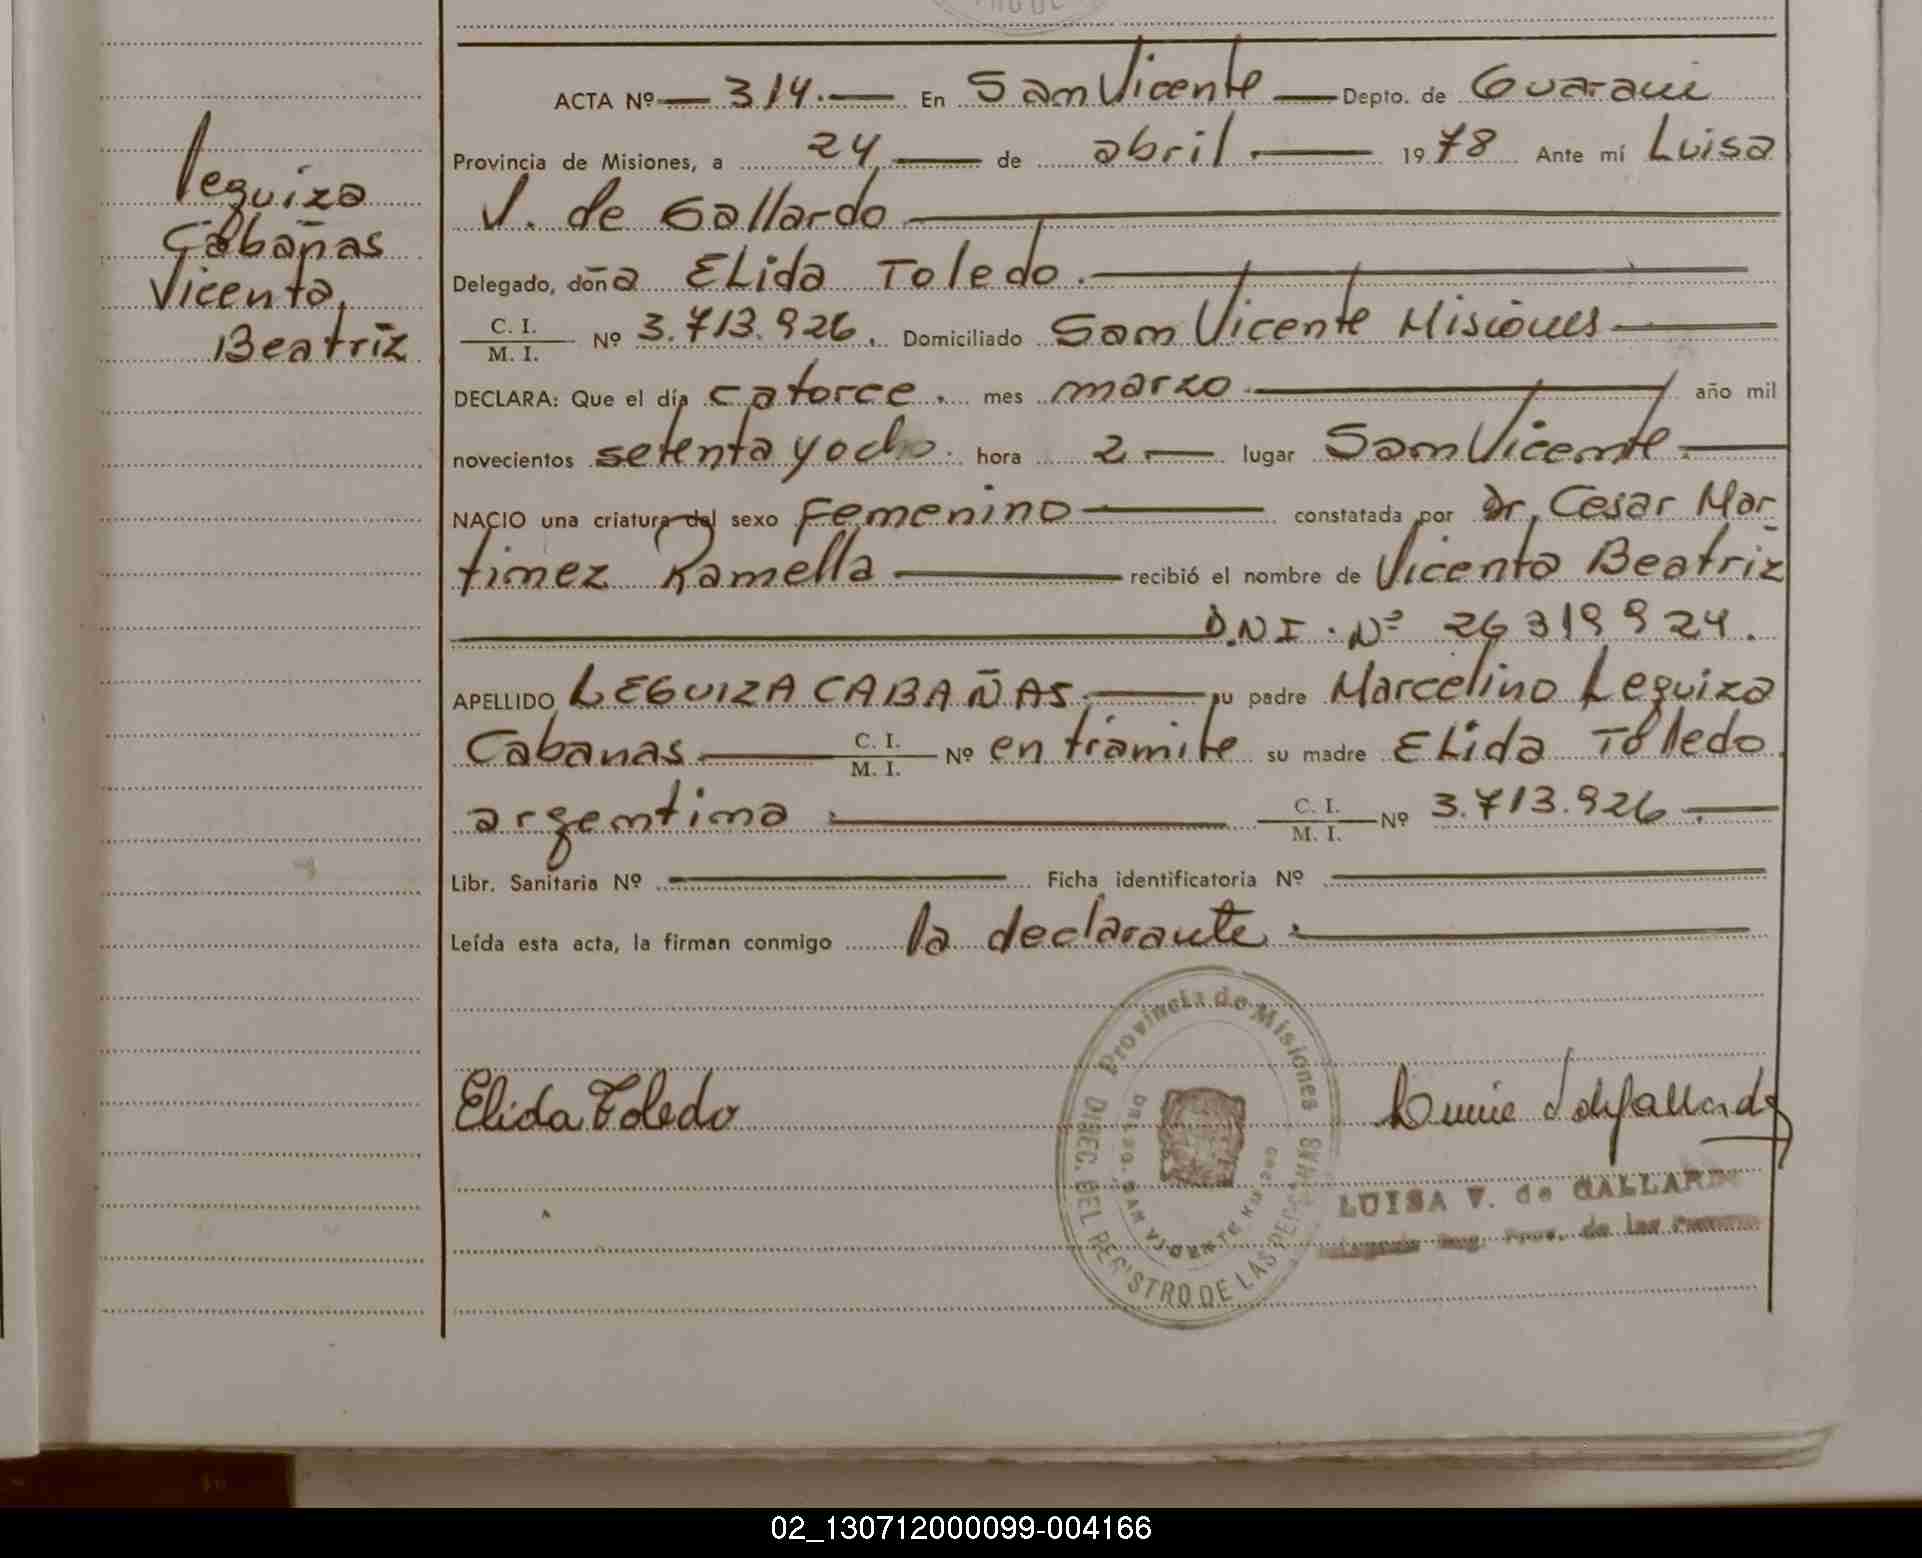 Leguiza
Cabañas
Vicenta,
Beatriz
ACTA Nº 314. En San Vicente Depto. de Guaraní
Provincia de Misiones, a 24 de abril. 1978 Ante mí Luisa
V. de Gallardo
Delegado, doña Elida Toledo.
C. I.
M. I. Nº 3.713.926. Domiciliado San Vicente Misiones
DECLARA: Que el día catorce. mes marzo año mil
novecientos setenta y ocho. hora 2 lugar San Vicente
NACIO una criatura del sexo Femenino constatada por Dr, Cesar Mar-
tinez Ramella recibió el nombre de Vicenta Beatriz
D.N I. Nº 26319924.
APELLIDO LEGUIZA CABAÑAS. su padre Marcelino Leguiza
Cabanas C. I. M. I. Nº en trámite su madre Elida Toledo.
argentina C. I. M. I. Nº 3.713.926
Libr. Sanitaria Nº Ficha identificatoria Nº
Leída esta acta, la firman conmigo la declarante
Provincia de Misiones
DIREC. DEL REGISTRO DE LAS PERSONAS
Elida Toledo
LUISA V. de GALLARDO
Prov. de las
02_130712000099-004166